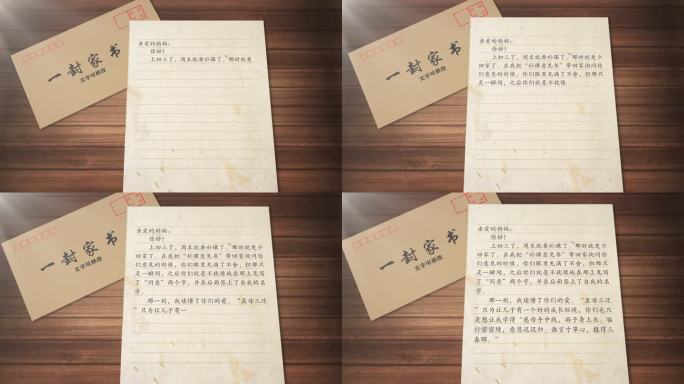 一封家书
文字可修改
亲爱的妈妈：
你好！
上初三了，周末就要补课了。那时就更
一封家书
文字可修改
亲爱的妈妈：
你好！
上初三了，周末就要补课了。那时就更少
回家了。在我把“补课意见书”带回家询问你
们意见的时候，你们眼里充满了不舍，但那只
是一瞬间，之后你们就毫不犹豫
一封家书
文字可修改
亲爱的妈妈：
你好！
上初三了，周末就要补课了。那时就更少
回家了。在我把“补课意见书”带回家询问你
们意见的时候，你们眼里充满了不舍，但那只
是一瞬间，之后你们就毫不犹豫地在那上见写
了“同意”两个字，并在后面签上了自我的名
字。
那一刻，我读懂了你们的爱。“孟母三迁
”只为让儿子有一
一封家书
文字可修改
亲爱的妈妈：
你好！
上初三了，周末就要补课了。那时就更少
回家了。在我把“补课意见书”带回家询问你
们意见的时候，你们眼里充满了不舍，但那只
是一瞬间，之后你们就毫不犹豫地在那上见写
了“同意”两个字，并在后面签上了自我的名
字。
那一刻，我读懂了你们的爱。“孟母三迁
”只为让儿子有一个好的成长环境，你们也只
是想让我学得“慈母手中线，游子身上衣。临
行密密缝，意恐迟迟归。谁言寸草心，报得三
春晖。”